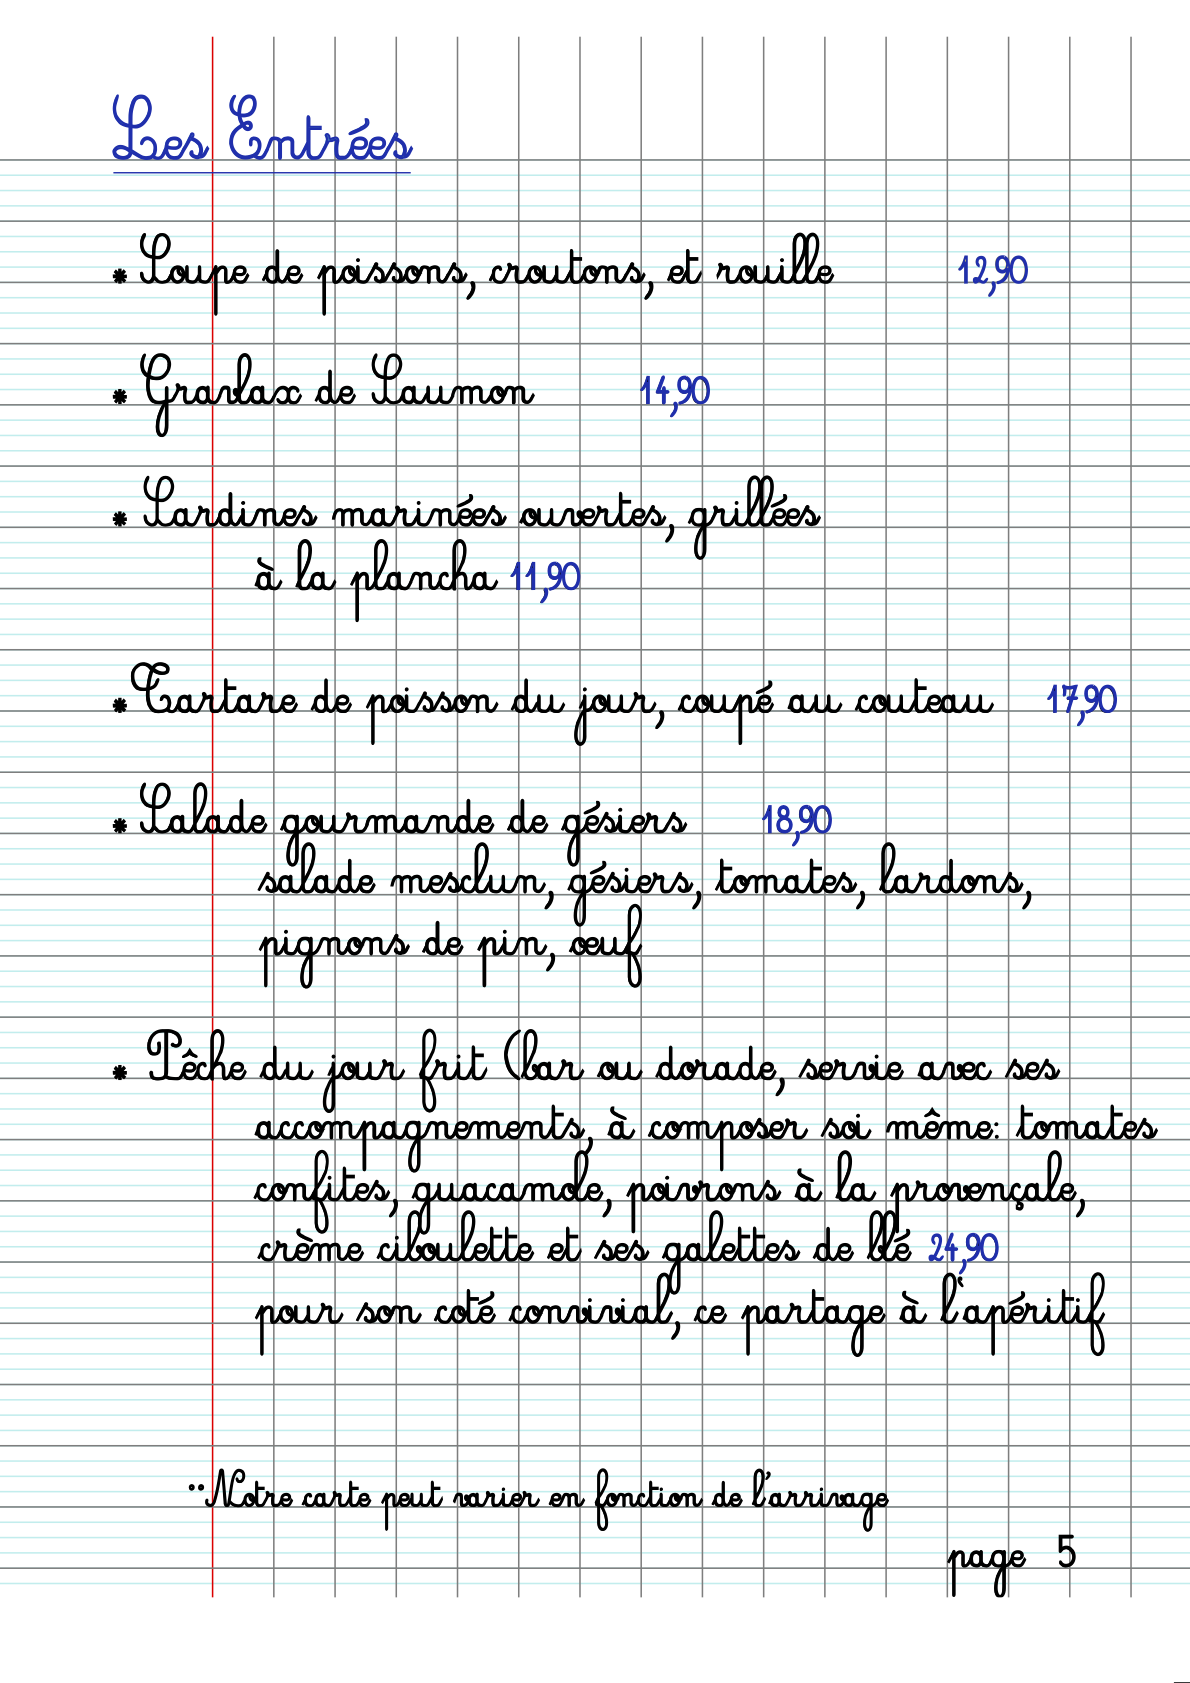 Les Entrées
* Soupe de poissons, croutons, et rouille 12,90
* Gravlax de Saumon 14,90
* Sardines marinées ouvertes, grillées
à la plancha 11,90
* Tartare de poisson du jour, coupé au couteau 17,90
* Salade gourmande de gésiers 18,90
salade mesclun, gésiers, tomates, lardons,
pignons de pin, œuf
* Pêche du jour frit (bar ou dorade, servie avec ses
accompagnements, à composer soi même: tomates
confites, guacamole, poivrons à la provençale,
crème ciboulette et ses galettes de blé 24,90
pour son coté convivial, ce partage à l‘apéritif
¨Notre carte peut varier en fonction de l’arrivage
page 5